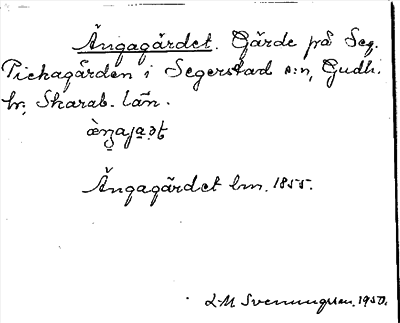 Ängagärdet. Gärde på Seg.
Pickagården i Segerstad s:n, Gudh.
hr, Skarab. län.
Ängagärdet lm. 1855.
L-M Svenungsson. 1950.